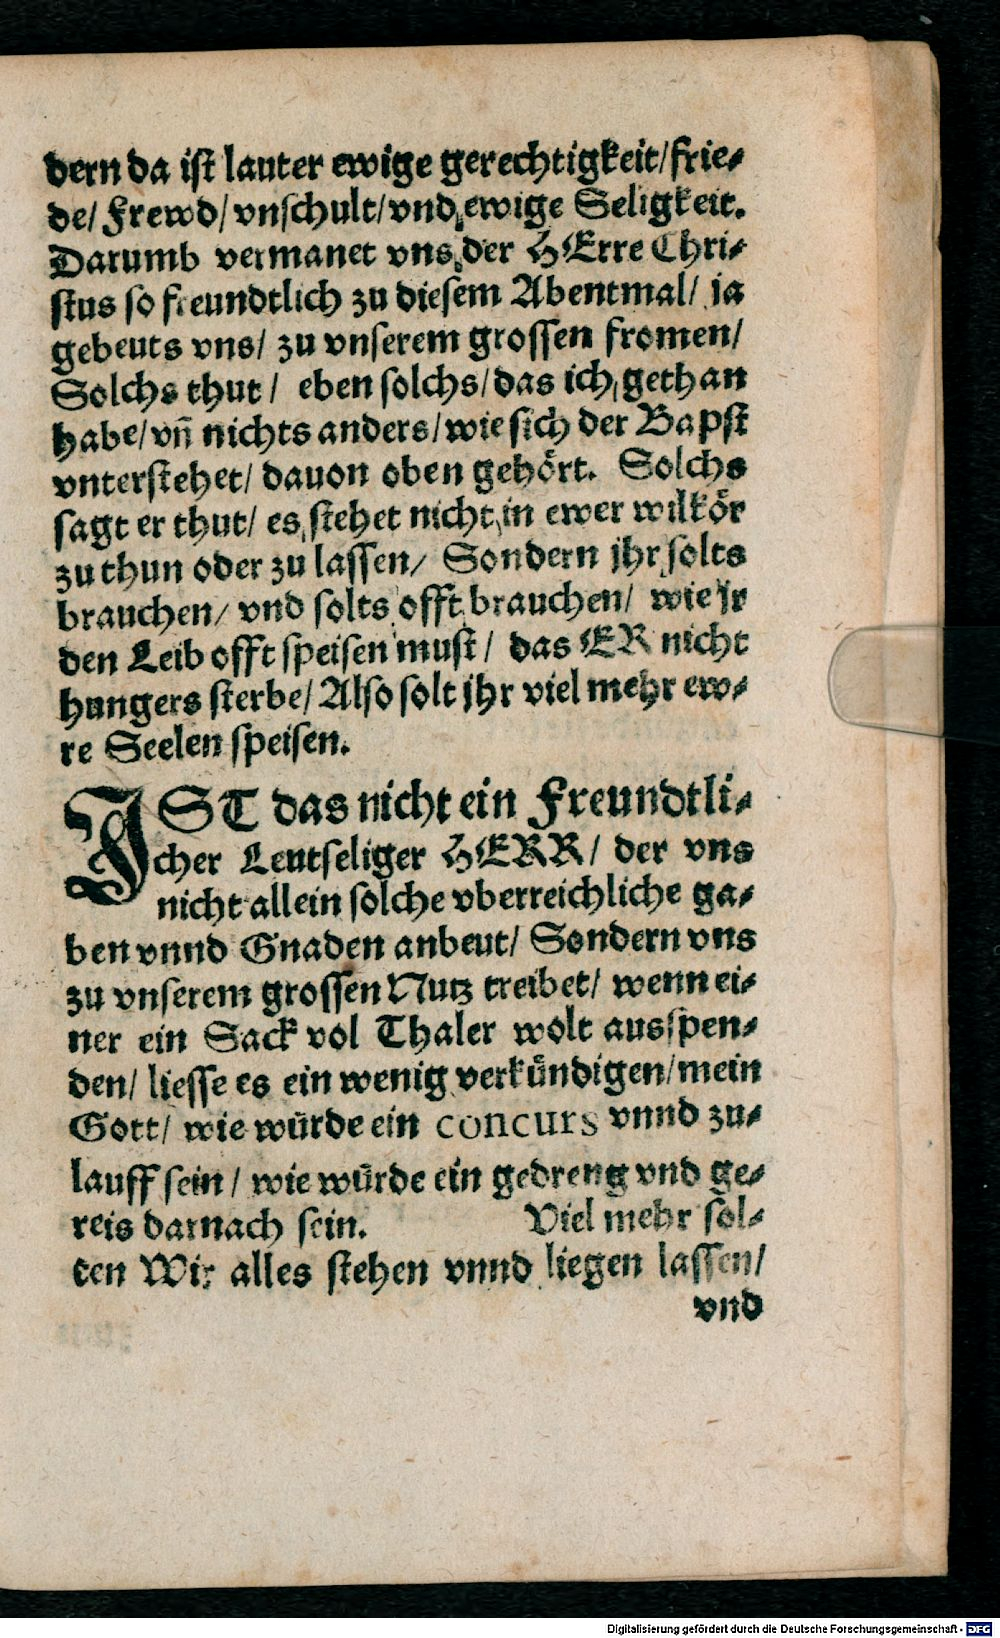 dern da ist lauter ewige gerechtigkeit/ frie-
de/ Frewd/ vnschult/ vnd ewige Seligkeit.
Darumb vermanet vns der HErre Chri-
stus so freundtlich zu diesem Abentmal/ ja
gebeuts vns/ zu vnserem grossen fromen/
Solchs thut/ eben solchs/ das ich gethan
habe/ vn̄ nichts anders/ wie sich der Bapst
vnterstehet/ dauon oben gehört. Solchs
sagt er thut/ es stehet nicht in ewer wilkör
zu thun oder zu lassen/ Sondern jhr solts
brauchen/ vnd solts offt brauchen/ wie jr
den Leib offt speisen must/ das ER nicht
hungers sterbe/ Also solt jhr viel mehr ew-
re Seelen speisen.
IST das nicht ein Freundtli-
cher Leutseliger HERR/ der vns
nicht allein solche vberreichliche ga-
ben vnnd Gnaden anbeut/ Sondern vns
zu vnserem grossen Nutz treibet/ wenn ei-
ner ein Sack vol Thaler wolt ausspen-
den/ liesse es ein wenig verkündigen/ mein
Gott/ wie würde ein concurs vnnd zu-
lauff sein/ wie würde ein gedreng vnd ge-
reis darnach sein. Viel mehr sol-
ten Wir alles stehen vnnd liegen lassen/
vnd
Digitalisierung gefördert durch die Deutsche Forschungsgemeinschaft - DFG